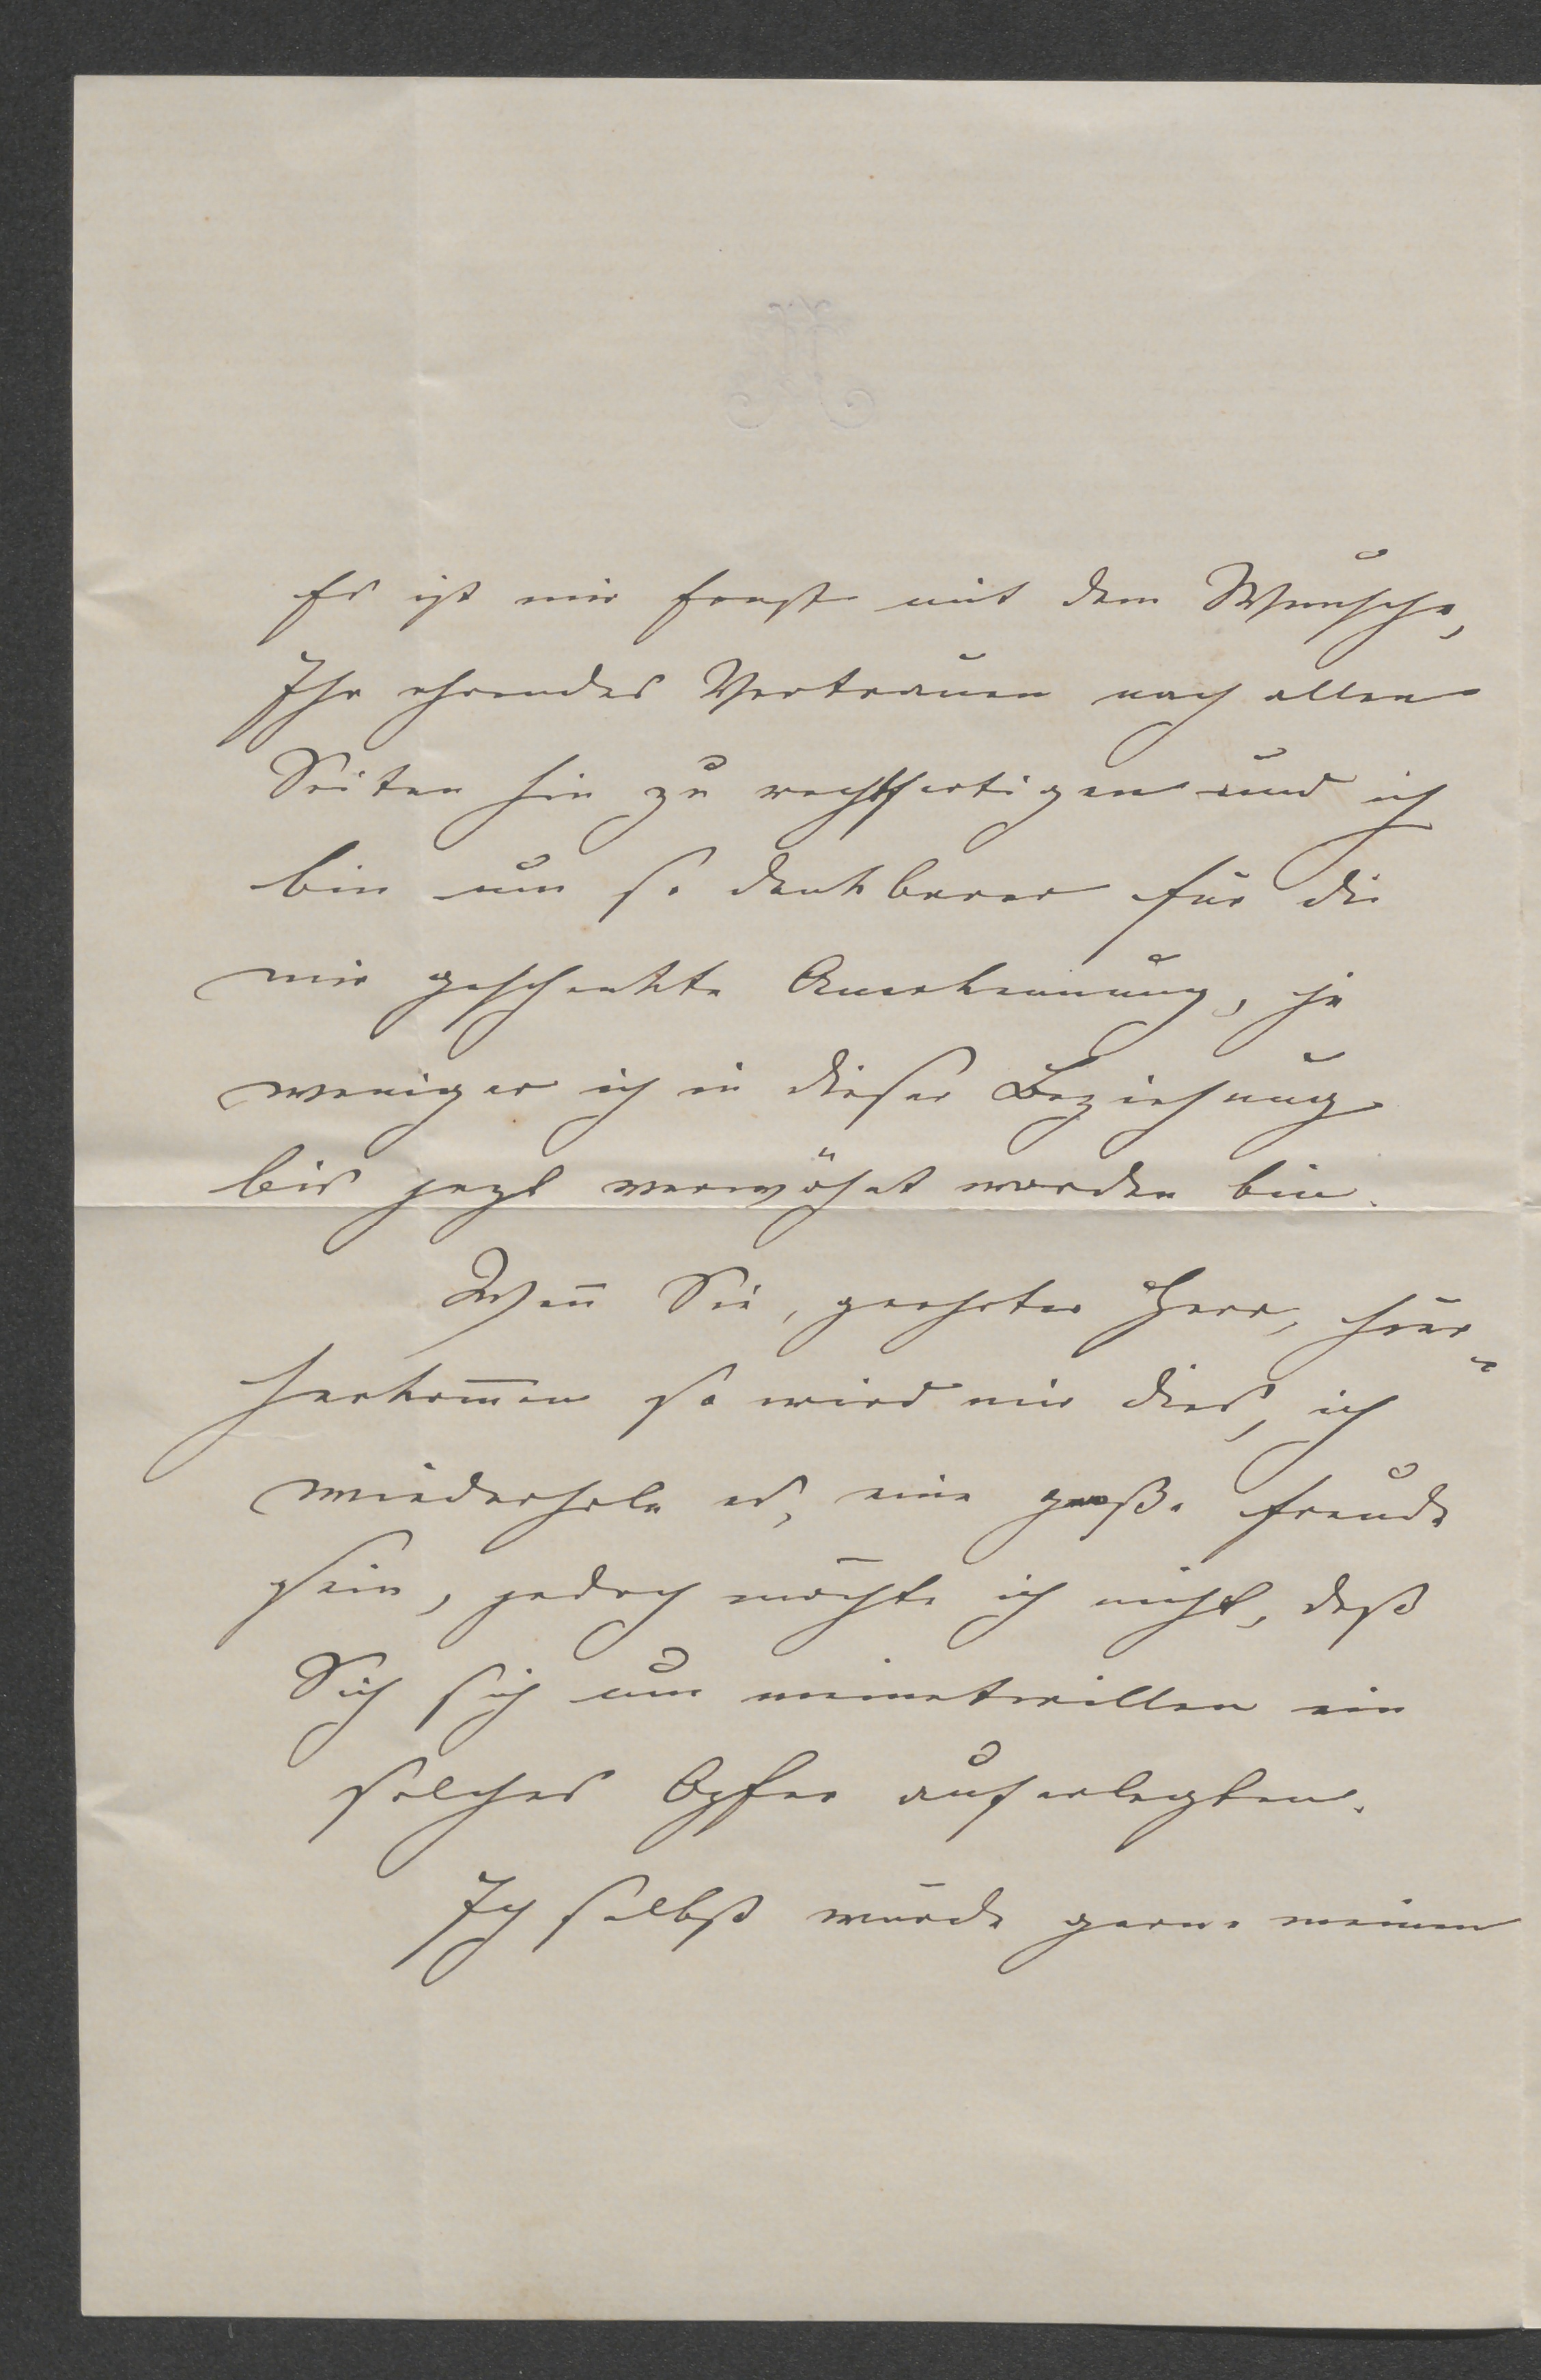 Es ist mir Ernst mit dem Wunsche,
Ihr ehrendes Vertrauen nach allen
Seiten hin zu rechtfertigen und ich
bin um so dankbarer für die
mir geschenkte Anerkennung, je
weniger ich in dieser Beziehung
bis jezt verwöhnt worden bin.
Wen̅ Sie, geehrter Herr, hier-
herkom̅en so wird mir dies, ich
wiederhole es, eine große Freude
sein, jedoch möchte ich nicht, daß
Sich sich um meinetwillen ein
solches Opfer auferlegten.
Ich selbst würde gerne meinen